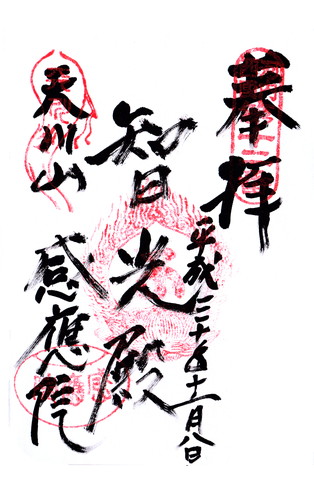 奉拝
平成二十五年十一月八日
智光殿
天川山
感應院